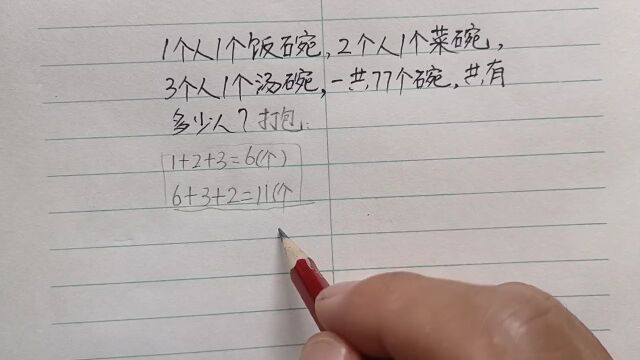 1个人1个饭碗，2个人1个菜碗，
3个人1个汤碗，一共77个碗，共有
多少人？打包：
1+2+3=6(个)
6+3+2=11(个